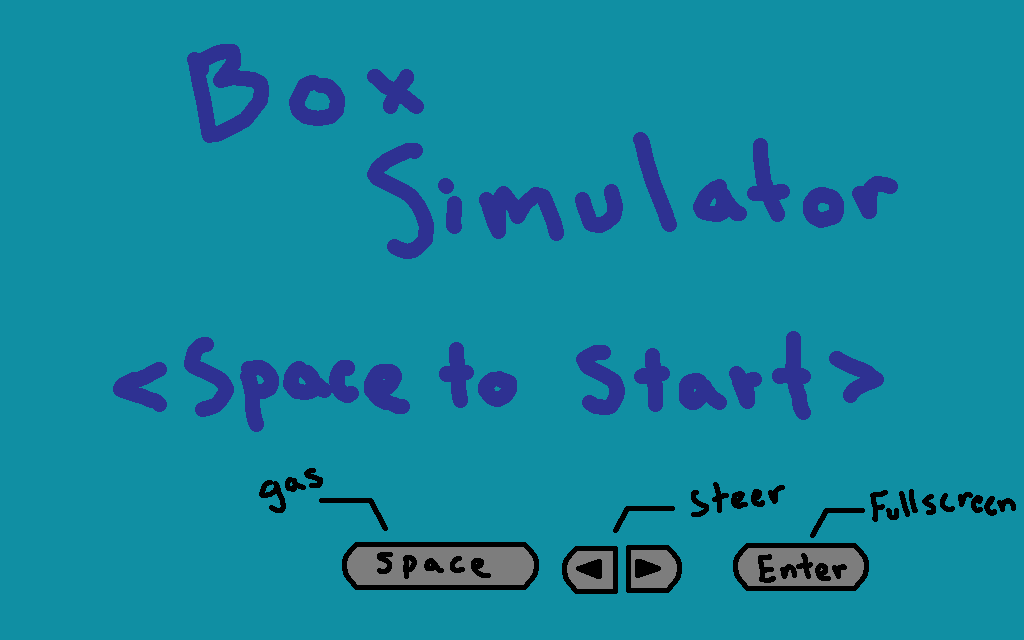 Box
Simulator
<Space to Start>
gas
steer
Fullscreen
Space
Enter